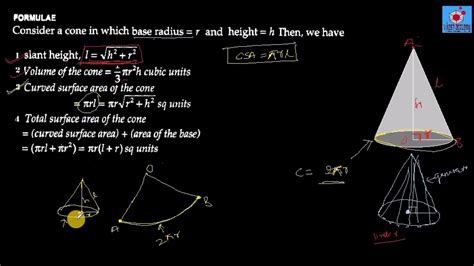 FORMULAE
Consider a cone in which base radius = r and height = h Then, we have
1 slant height, l = √h² + r²
2 Volume of the cone = 1/3 πr²h cubic units
3 Curved surface area of the cone
= πrl = πr√r² + h² sq units
4 Total surface area of the cone
= (curved surface area) + (area of the base)
= (πrl + πr²) = πr(l + r) sq units
CSA = πrl
A
l
h
O
r
B
C = 2πr
O
A
B
2πr
h
l